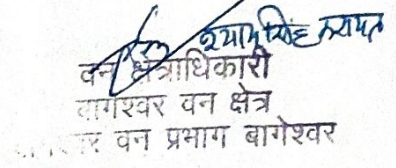 श्याम सिंह करायत
वन क्षेत्राधिकारी
बागेश्वर वन क्षेत्र
बागेश्वर वन प्रभाग बागेश्वर